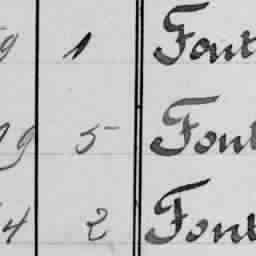 9 1 Font
99 5 Font
4 2 Font